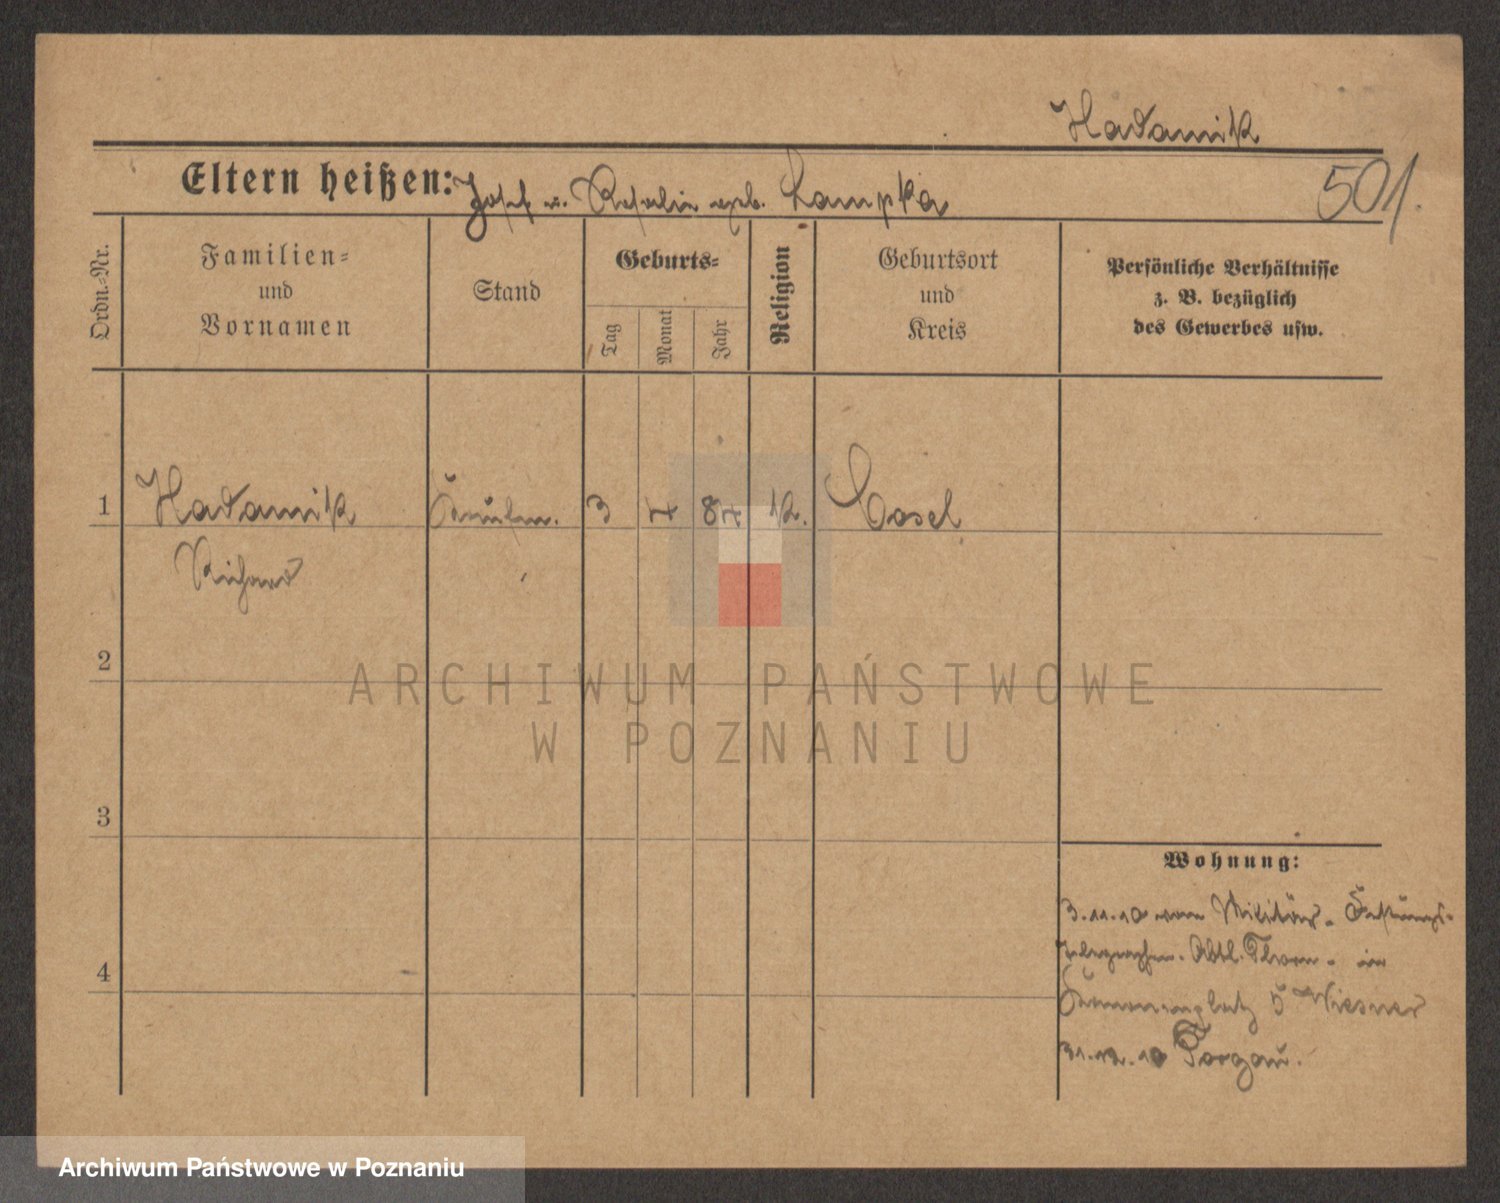 Hadamik
501.
Eltern heißen: Josef u. Rosalie geb. Lampka
Ordn.-Nr.
Familien- und Vornamen
Stand
Geburts-
Tag
Monat
Jahr
Religion
Geburtsort und Kreis
Persönliche Verhältnisse
z. B. bezüglich
des Gewerbes usw.
1 Hadamik 3 4 84 k. Cosel
Richard
2
ARCHIWUM PAŃSTWOWE
W POZNANIU
3
Wohnung:
3.11.10 vom Militär-Festungs-
Telegraphen. Abtl. Thorn - in
4
5 Wiesner
31.12.10 Torgau.
Archiwum Państwowe w Poznaniu